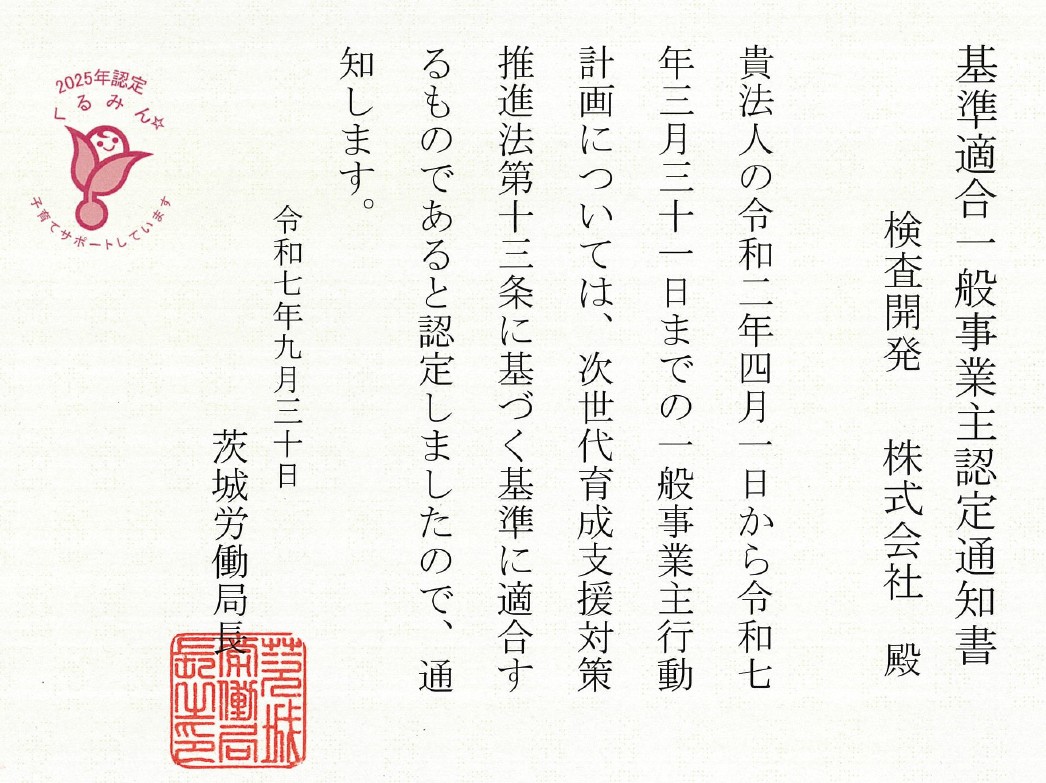 基準適合一般事業主認定通知書
検査開発　株式会社　殿
貴法人の令和二年四月一日から令和七
年三月三十一日までの一般事業主行動
計画については、次世代育成支援対策
推進法第十三条に基づく基準に適合す
るものであると認定しましたので、通
知します。
令和七年九月三十日
茨城労働局長
茨城
労働局
長之印
2025年認定
くるみん☆
子育てサポートしています